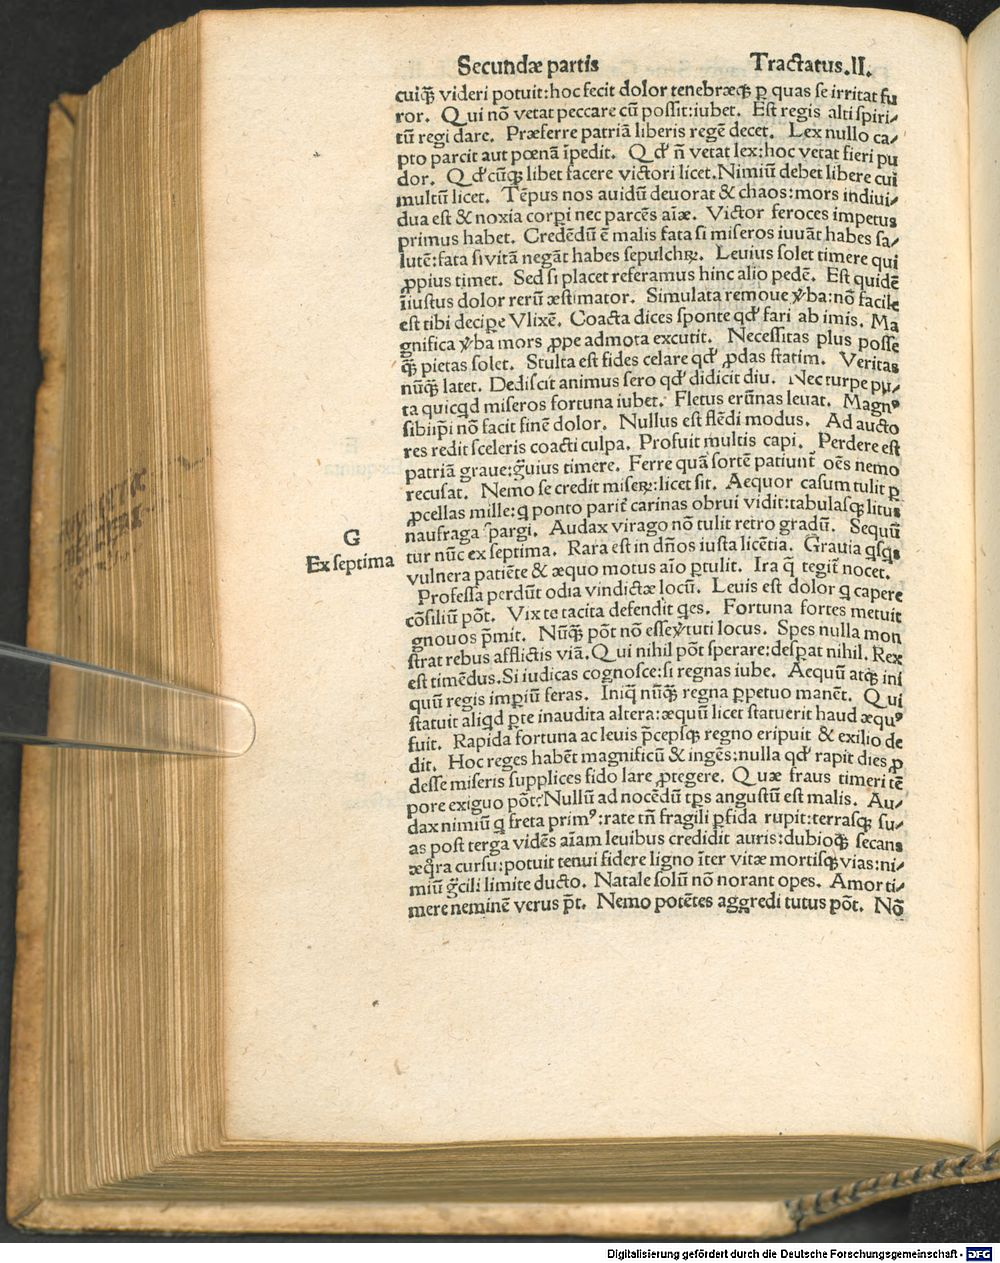 Secundæ partis Tractatus.II.
cuiq̃ videri potuit:hoc fecit dolor tenebræq̃ ꝑ quas se irritat fu
ror. Qui nõ vetat peccare cũ possit:iubet. Est regis alti spiri⸗
tũ regi dare. Præferre patriã liberis regẽ decet. Lex nullo ca⸗
pto parcit aut pœnã ĩpedit. Qd' ñ vetat lex:hoc vetat fieri pu
dor. Qd' cũq; libet facere victori licet. Nimiũ debet libere cui
multũ licet. Tẽpus nos auidũ deuorat & chaos:mors indiui⸗
dua est & noxia corꝑi nec parcẽs aiæ. Victor feroces impetus
primus habet. Credẽdũ ẽ malis fata si miseros iuuãt habes sa⸗
lutẽ:fata si vitã negãt habes sepulchꝝ. Leuius solet timere qui
ꝓpius timet. Sed si placet referamus hinc alio pedẽ. Est quidẽ
ĩiustus dolor rerũ æstimator. Simulata remoue ṽba:nõ facile
est tibi deciꝑe Vlixẽ. Coacta dices sponte qd' fari ab imis. Ma
gnifica ṽba mors ꝓpe admota excutit. Necessitas plus posse
q̃ pietas solet. Stulta est fides celare qd' ꝓdas statim. Veritas
nũq̃ latet. Dediscit animus sero qd' didicit diu. Nec turpe pu⸗
ta quicqd miseros fortuna iubet. Fletus erũnas leuat. Magnꝰ
sibiip̃i nõ facit finẽ dolor. Nullus est flẽdi modus. Ad aucto
res redit sceleris coacti culpa. Profuit multis capi. Perdere est
patriã graue:g̃uius timere. Ferre quã sortẽ patiunt̃ oẽs nemo
recusat. Nemo se credit miseꝝ:licet sit. Aequor casum tulit ꝑ
ꝓcellas mille:q ponto parit̃ carinas obrui vidit:tabulasq; litus
naufraga spargi. Audax virago nõ tulit retro gradũ. Sequũ
G
Ex septima
tur nũc ex septima. Rara est in dños iusta licẽtia. Grauia qsqs
vulnera patiẽte & æquo motus aio ꝑtulit. Ira q̃ tegit̃ nocet.
Professa perdũt odia vindictæ locũ. Leuis est dolor q capere
cõsiliũ põt. Vix te tacita defendit qes. Fortuna fortes metuit
gnouos p̃mit. Nũq̃ põt nõ esse ṽtuti locus. Spes nulla mon
strat rebus afflictis viã. Qui nihil põt sperare:desꝑat nihil. Rex
est timẽdus. Si iudicas cognosce:si regnas iube. Aequũ atq; ini
quũ regis impiũ feras. Iniq̃ nũq̃ regna ꝑpetuo manẽt. Qui
statuit aliqd ꝑte inaudita altera:æquũ licet statuerit haud æquꝰ
fuit. Rapida fortuna ac leuis p̃cepsq; regno eripuit & exilio de
dit. Hoc reges habẽt magnificũ & ingẽs:nulla qd' rapit dies ꝓ
desse miseris supplices fido lare ꝓtegere. Quæ fraus timeri tẽ
pore exiguo põt:Nullũ ad nocẽdũ tp̃s angustũ est malis. Au⸗
dax nimiũ q freta primꝰ:rate tñ fragili ꝑfida rupit:terrasq; su⸗
as post terga vidẽs aĩam leuibus credidit auris:dubioq; secans
æqra cursu:potuit tenui fidere ligno ĩter vitæ mortisq; vias:ni⸗
miũ g̃cili limite ducto. Natale solũ nõ norant opes. Amor ti⸗
mere neminẽ verus p̃t. Nemo potẽtes aggredi tutus põt. Nõ
Digitalisierung gefördert durch die Deutsche Forschungsgemeinschaft - DFG